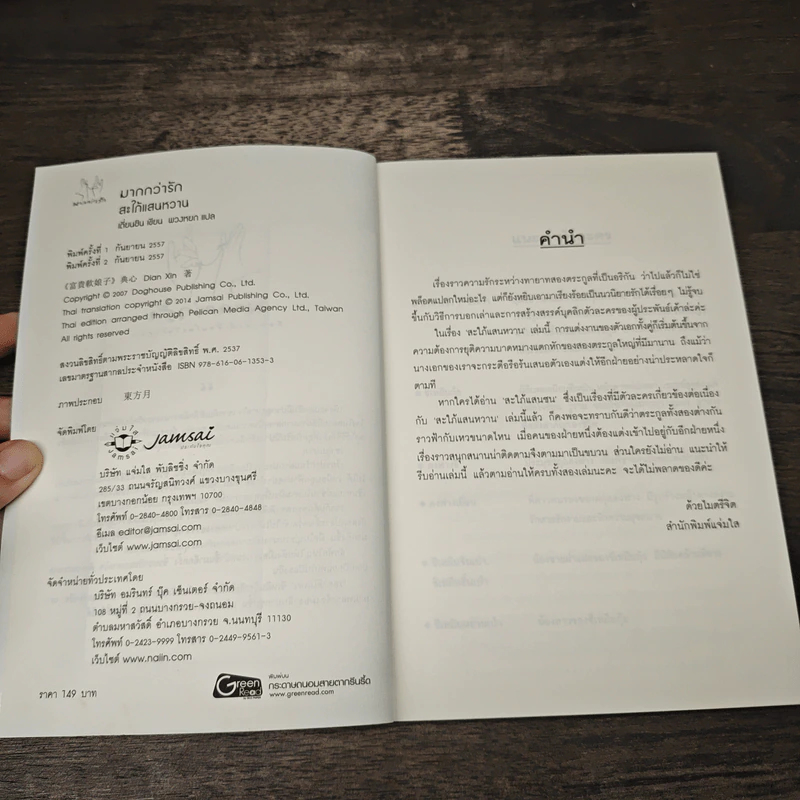 มากกว่ารัก
สะใภ้แสนหวาน
เตี่ยนซิน เขียน พวงหยก แปล
พิมพ์ครั้งที่ 1 กันยายน 2557
พิมพ์ครั้งที่ 2 กันยายน 2557
《富貴軟娘子》典心 Dian Xin 著
Copyright © 2007 Doghouse Publishing Co., Ltd.
Thai translation copyright © 2014 Jamsai Publishing Co., Ltd.
Thai edition arranged through Pelican Media Agency Ltd., Taiwan
All rights reserved
สงวนลิขสิทธิ์ตามพระราชบัญญัติลิขสิทธิ์ พ.ศ. 2537
เลขมาตรฐานสากลประจำหนังสือ ISBN 978-616-06-1353-3
ภาพประกอบ 東方月
จัดพิมพ์โดย
Jamsai
บริษัท แจ่มใส พับลิชชิ่ง จำกัด
285/33 ถนนจรัญสนิทวงศ์ แขวงบางขุนศรี
เขตบางกอกน้อย กรุงเทพฯ 10700
โทรศัพท์ 0-2840-4800 โทรสาร 0-2840-4848
อีเมล editor@jamsai.com
เว็บไซต์ www.jamsai.com
จัดจำหน่ายทั่วประเทศโดย
บริษัท อมรินทร์ บุ๊ค เซ็นเตอร์ จำกัด
108 หมู่ที่ 2 ถนนบางกรวย-จงถนอม
ตำบลมหาสวัสดิ์ อำเภอบางกรวย จ.นนทบุรี 11130
โทรศัพท์ 0-2423-9999 โทรสาร 0-2449-9561-3
เว็บไซต์ www.naiin.com
ราคา 149 บาท
Green Read
พิมพ์บน
กระดาษถนอมสายตากรีนรี้ด
www.greenread.com
คำนำ
เรื่องราวความรักระหว่างทายาทสองตระกูลที่เป็นอริกัน ว่าไปแล้วก็ไม่ใช่
พล็อตแปลกใหม่อะไร แต่ก็ยังหยิบเอามาเรียงร้อยเป็นนวนิยายรักได้เรื่อยๆ ไม่รู้จบ
ขึ้นกับวิธีการบอกเล่าและการสร้างสรรค์บุคลิกตัวละครของผู้ประพันธ์เค้าล่ะค่ะ
ในเรื่อง 'สะใภ้แสนหวาน' เล่มนี้ การแต่งงานของตัวเอกทั้งคู่ก็เริ่มต้นขึ้นจาก
ความต้องการยุติความบาดหมางแตกหักของสองตระกูลใหญ่ที่มีมานาน ถึงแม้ว่า
นางเอกของเราจะกระตือรือร้นเสนอตัวเองแต่งให้อีกฝ่ายอย่างน่าประหลาดใจก็
ตามที
หากใครได้อ่าน 'สะใภ้แสนซน' ซึ่งเป็นเรื่องที่มีตัวละครเกี่ยวข้องต่อเนื่อง
กับ 'สะใภ้แสนหวาน' เล่มนี้แล้ว ก็คงพอจะทราบกันดีว่าตระกูลทั้งสองต่างกัน
ราวฟ้ากับเหวขนาดไหน เมื่อคนของฝ่ายหนึ่งต้องแต่งเข้าไปอยู่กับอีกฝ่ายหนึ่ง
เรื่องราวสนุกสนานน่าติดตามจึงตามมาเป็นขบวน ส่วนใครยังไม่อ่าน แนะนำให้
รีบอ่านเล่มนี้ แล้วตามอ่านให้ครบทั้งสองเล่มนะคะ จะได้ไม่พลาดของดีค่ะ
ด้วยไมตรีจิต
สำนักพิมพ์แจ่มใส